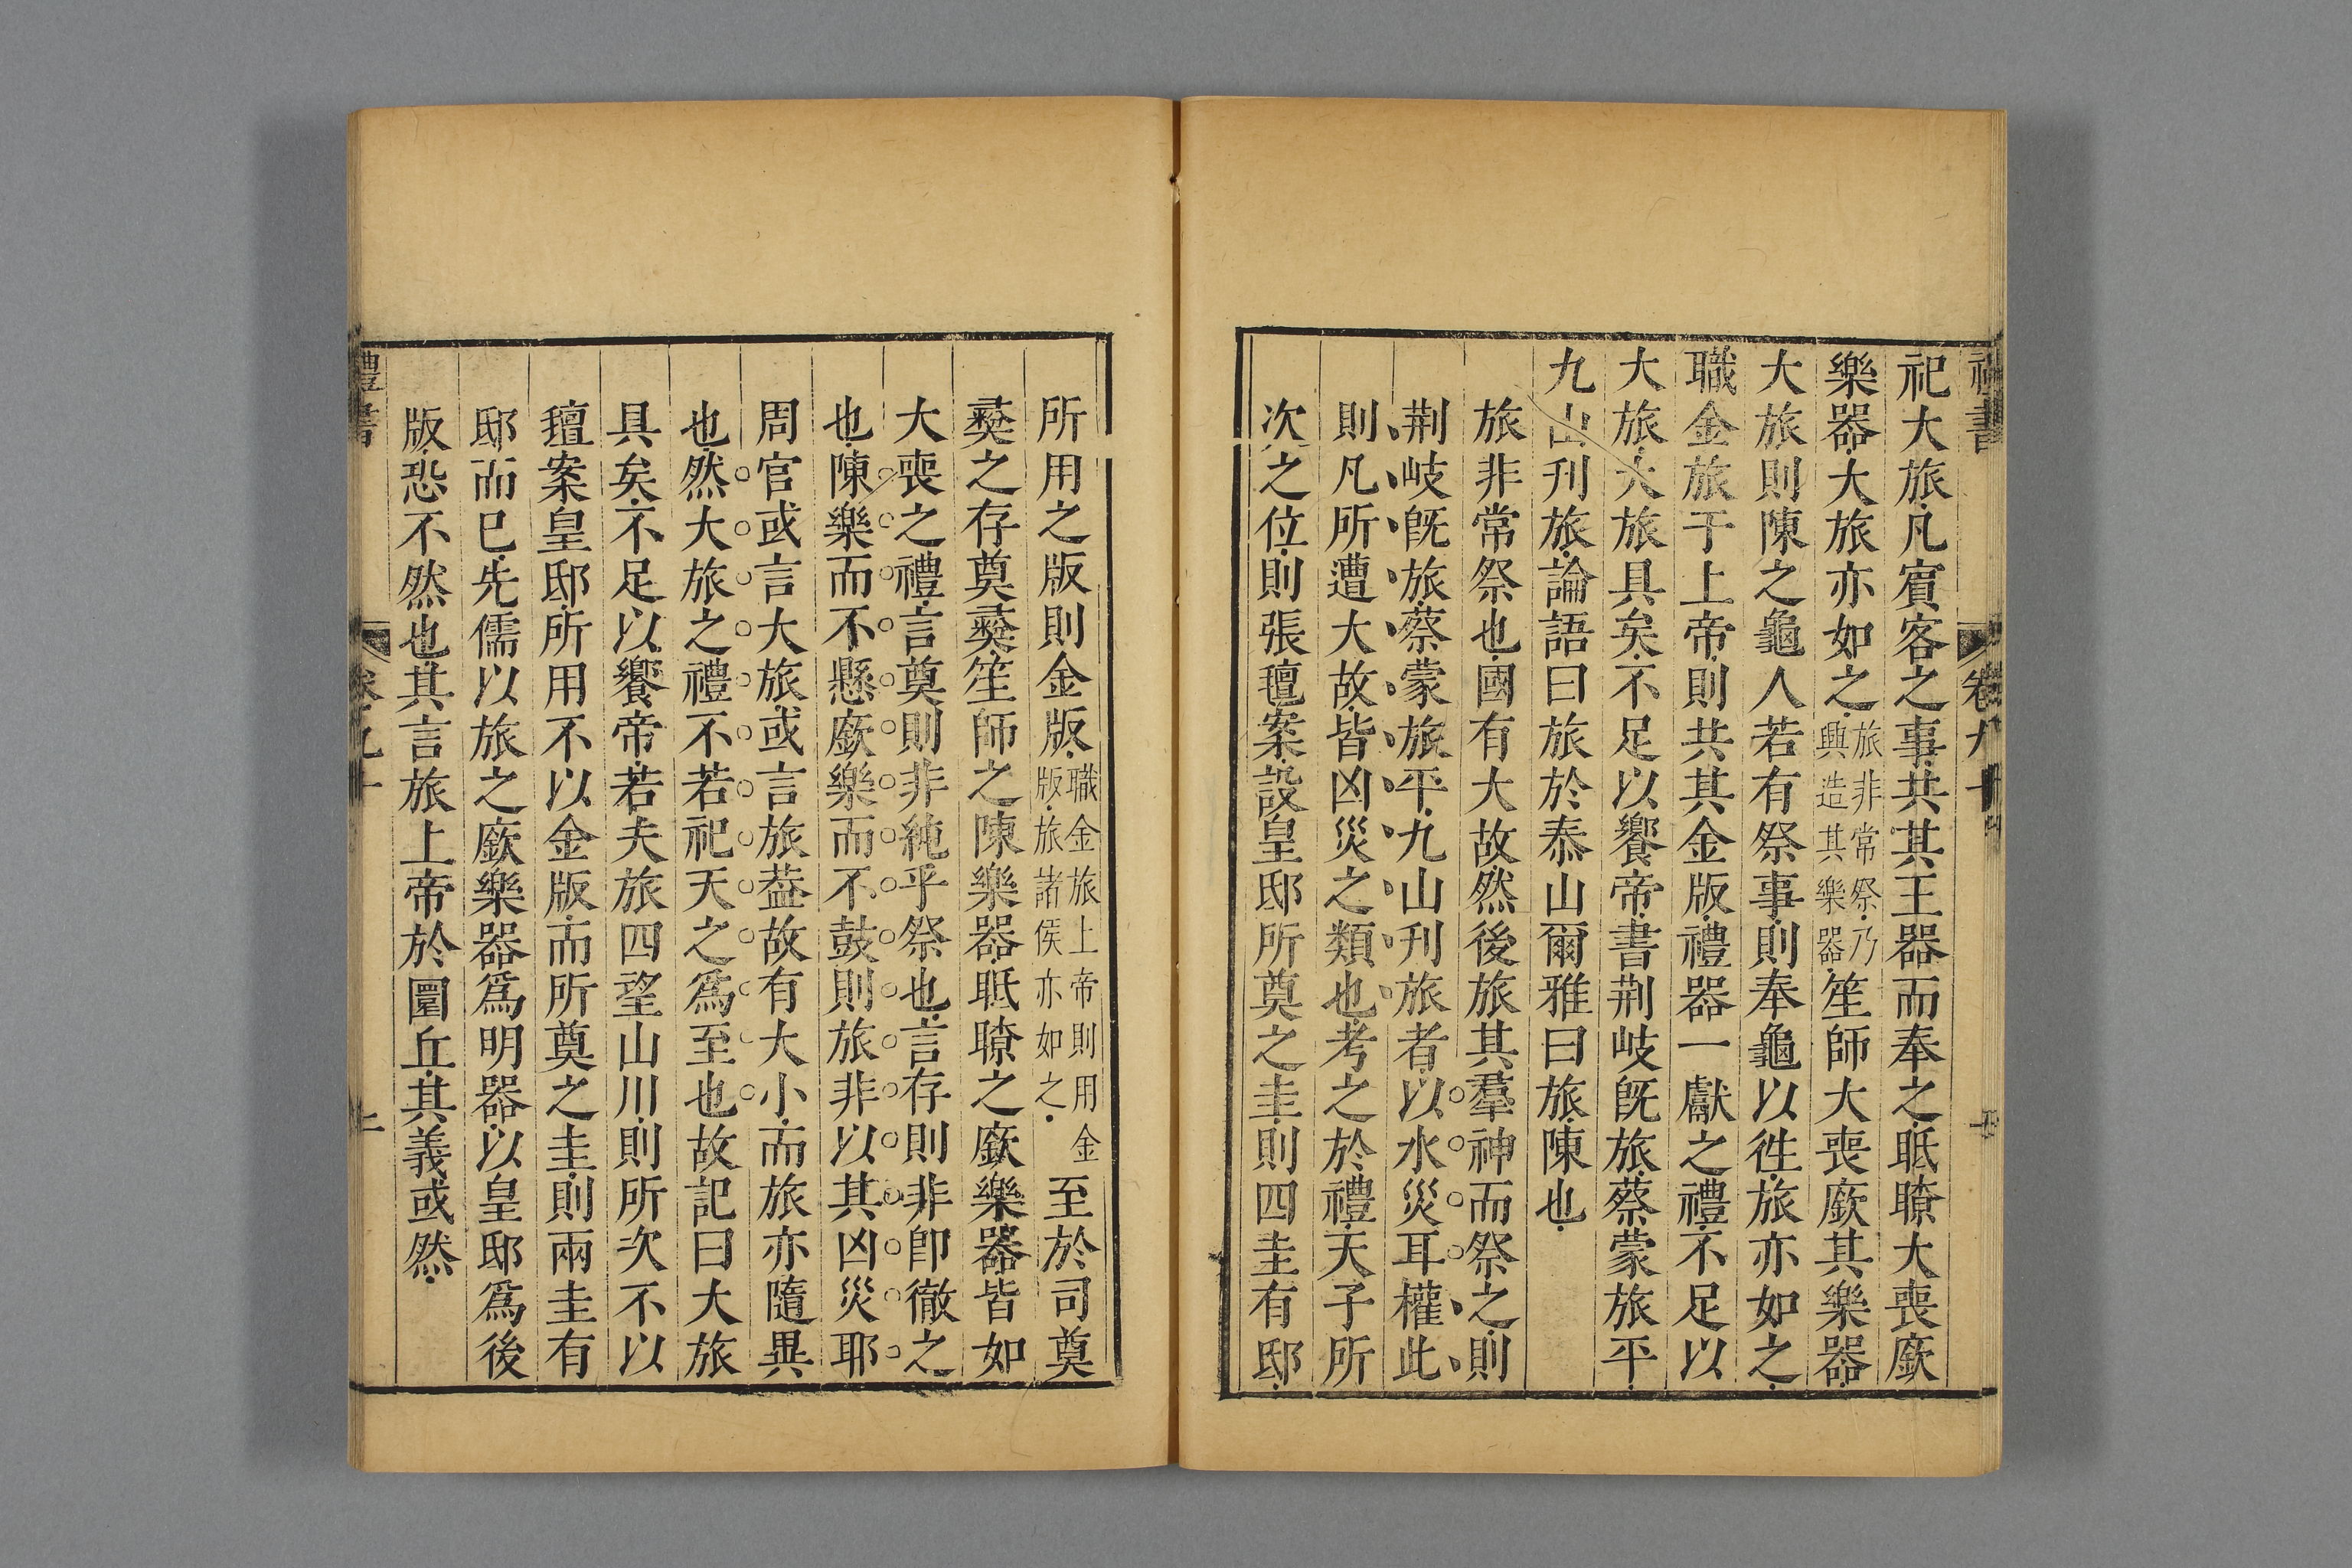 祀大旅凡賓客之事共其王器而奉之眡瞭大喪廞
樂器大旅亦如之旅非常祭乃興造其樂器笙師大喪廞其樂器
大旅則陳之龜人若有祭事則奉龜以徃旅亦如之
職金旅于上帝則共其金版禮器一獻之禮不足以
大旅大旅具矣不足以饗帝書荆岐旣旅蔡蒙旅平
九山刊旅論語曰旅於泰山爾雅曰旅陳也
旅非常祭也國有大故然後旅其羣神而祭之則
荆岐旣旅蔡蒙旅平九山刊旅者以水災耳權此
則凡所遭大故皆凶災之類也考之於禮天子所
次之位則張氊案設皇邸所奠之圭則四圭有邸
所用之版則金版職金旅上帝則用金版旅諸侯亦如之至於司奠
彝之存奠彝笙師之陳樂器眡瞭之廞樂器皆如
大喪之禮言奠則非純乎祭也言存則非卽徹之
也陳樂而不懸廞樂而不鼓則旅非以其凶災耶
周官或言大旅或言旅葢故有大小而旅亦隨異
也然大旅之禮不若祀天之爲至也故記曰大旅
具矣不足以饗帝若夫旅四望山川則所次不以
氊案皇邸所用不以金版而所奠之圭則兩圭有
邸而已先儒以旅之廞樂器爲明器以皇邸爲後
版恐不然也其言旅上帝於圜丘其義或然
禮書